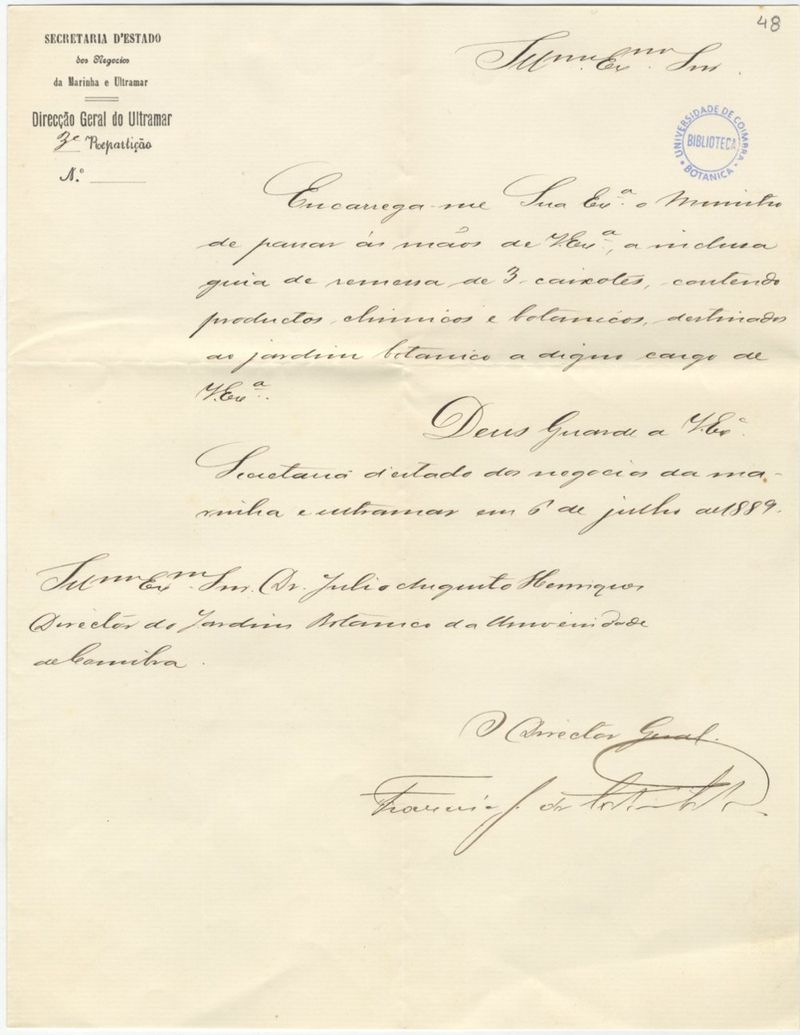 48
SECRETARIA D'ESTADO
dos Negocios
da Marinha e Ultramar
Direcção Geral do Ultramar
3ª Repartição
N.º
Illmo. Exmo. Snr.
UNIVERSIDADE DE COIMBRA
BIBLIOTECA
BOTANICA
Encarrega-me Sua Exª. o Ministro
de passar ás mãos de V.Exª., a inclusa
guia de remessa de 3 caixotes, contendo
productos chimicos e botanicos, destinados
ao jardim botanico a digno cargo de
V.Exª.
Deus Guarde a V.Exª.
Secretaria d'estado dos negocios da ma-
rinha e ultramar em 6 de julho de 1889.
Illmo. Exmo. Snr. Dr. Julio Augusto Henriques
Director do Jardim Botanico da Universidade
de Coimbra.
O Director Geral.
Francisco J. da